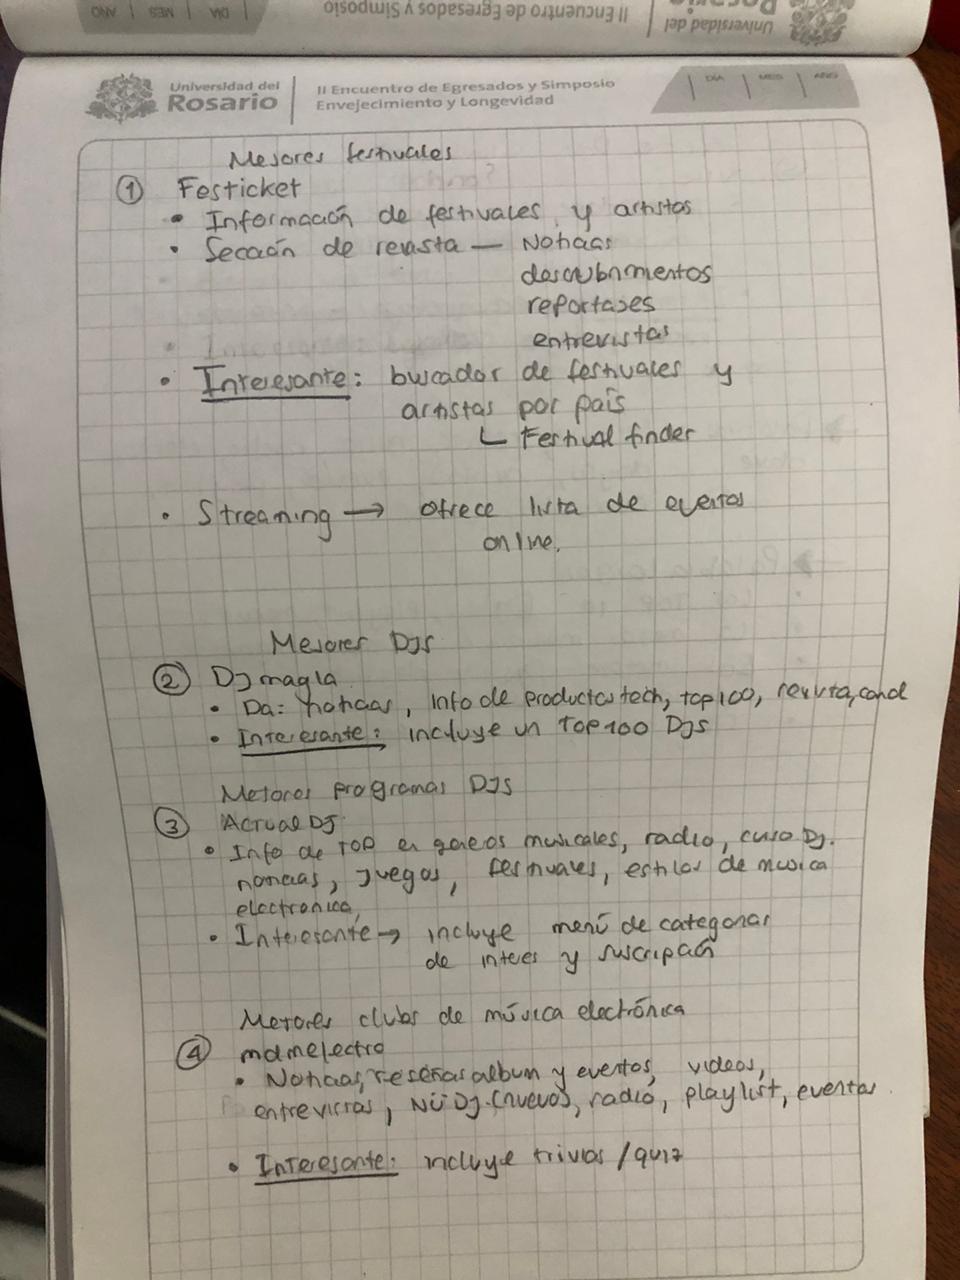 II Encuentro de Egresados y Simposio
Universidad del
DÍA MES AÑO
Universidad del
Rosario
II Encuentro de Egresados y Simposio
Envejecimiento y Longevidad
DÍA MES AÑO
Mejores festivales
① Festicket
• Información de festivales y artistas
• Sección de revista — Noticias
descubrimientos
reportajes
entrevistas
• Interesante: buscador de festivales y
artistas por país
Festival finder
• Streaming → ofrece lista de eventos
online.
Mejores DJS
② DJ magla
• Da: noticias, info de productos tech, top100, revista, cond
• Interesante: incluye un TOP100 DJS
Mejores programas DJS
③ Actual DJ
• Info de TOP en géneros musicales, radio, curso Dj.
noticias, Juegos, festivales, estilos de musica
electronica,
• Interesante → incluye menú de categorias
de interes y suscripción
Mejores clubs de música electrónica
④ mdmelectro
• Noticias, reseñas album y eventos, videos,
entrevistas, NÜ Dj. (nuevos), radio, playlist, eventos.
• Interesante: incluye trivias / quiz